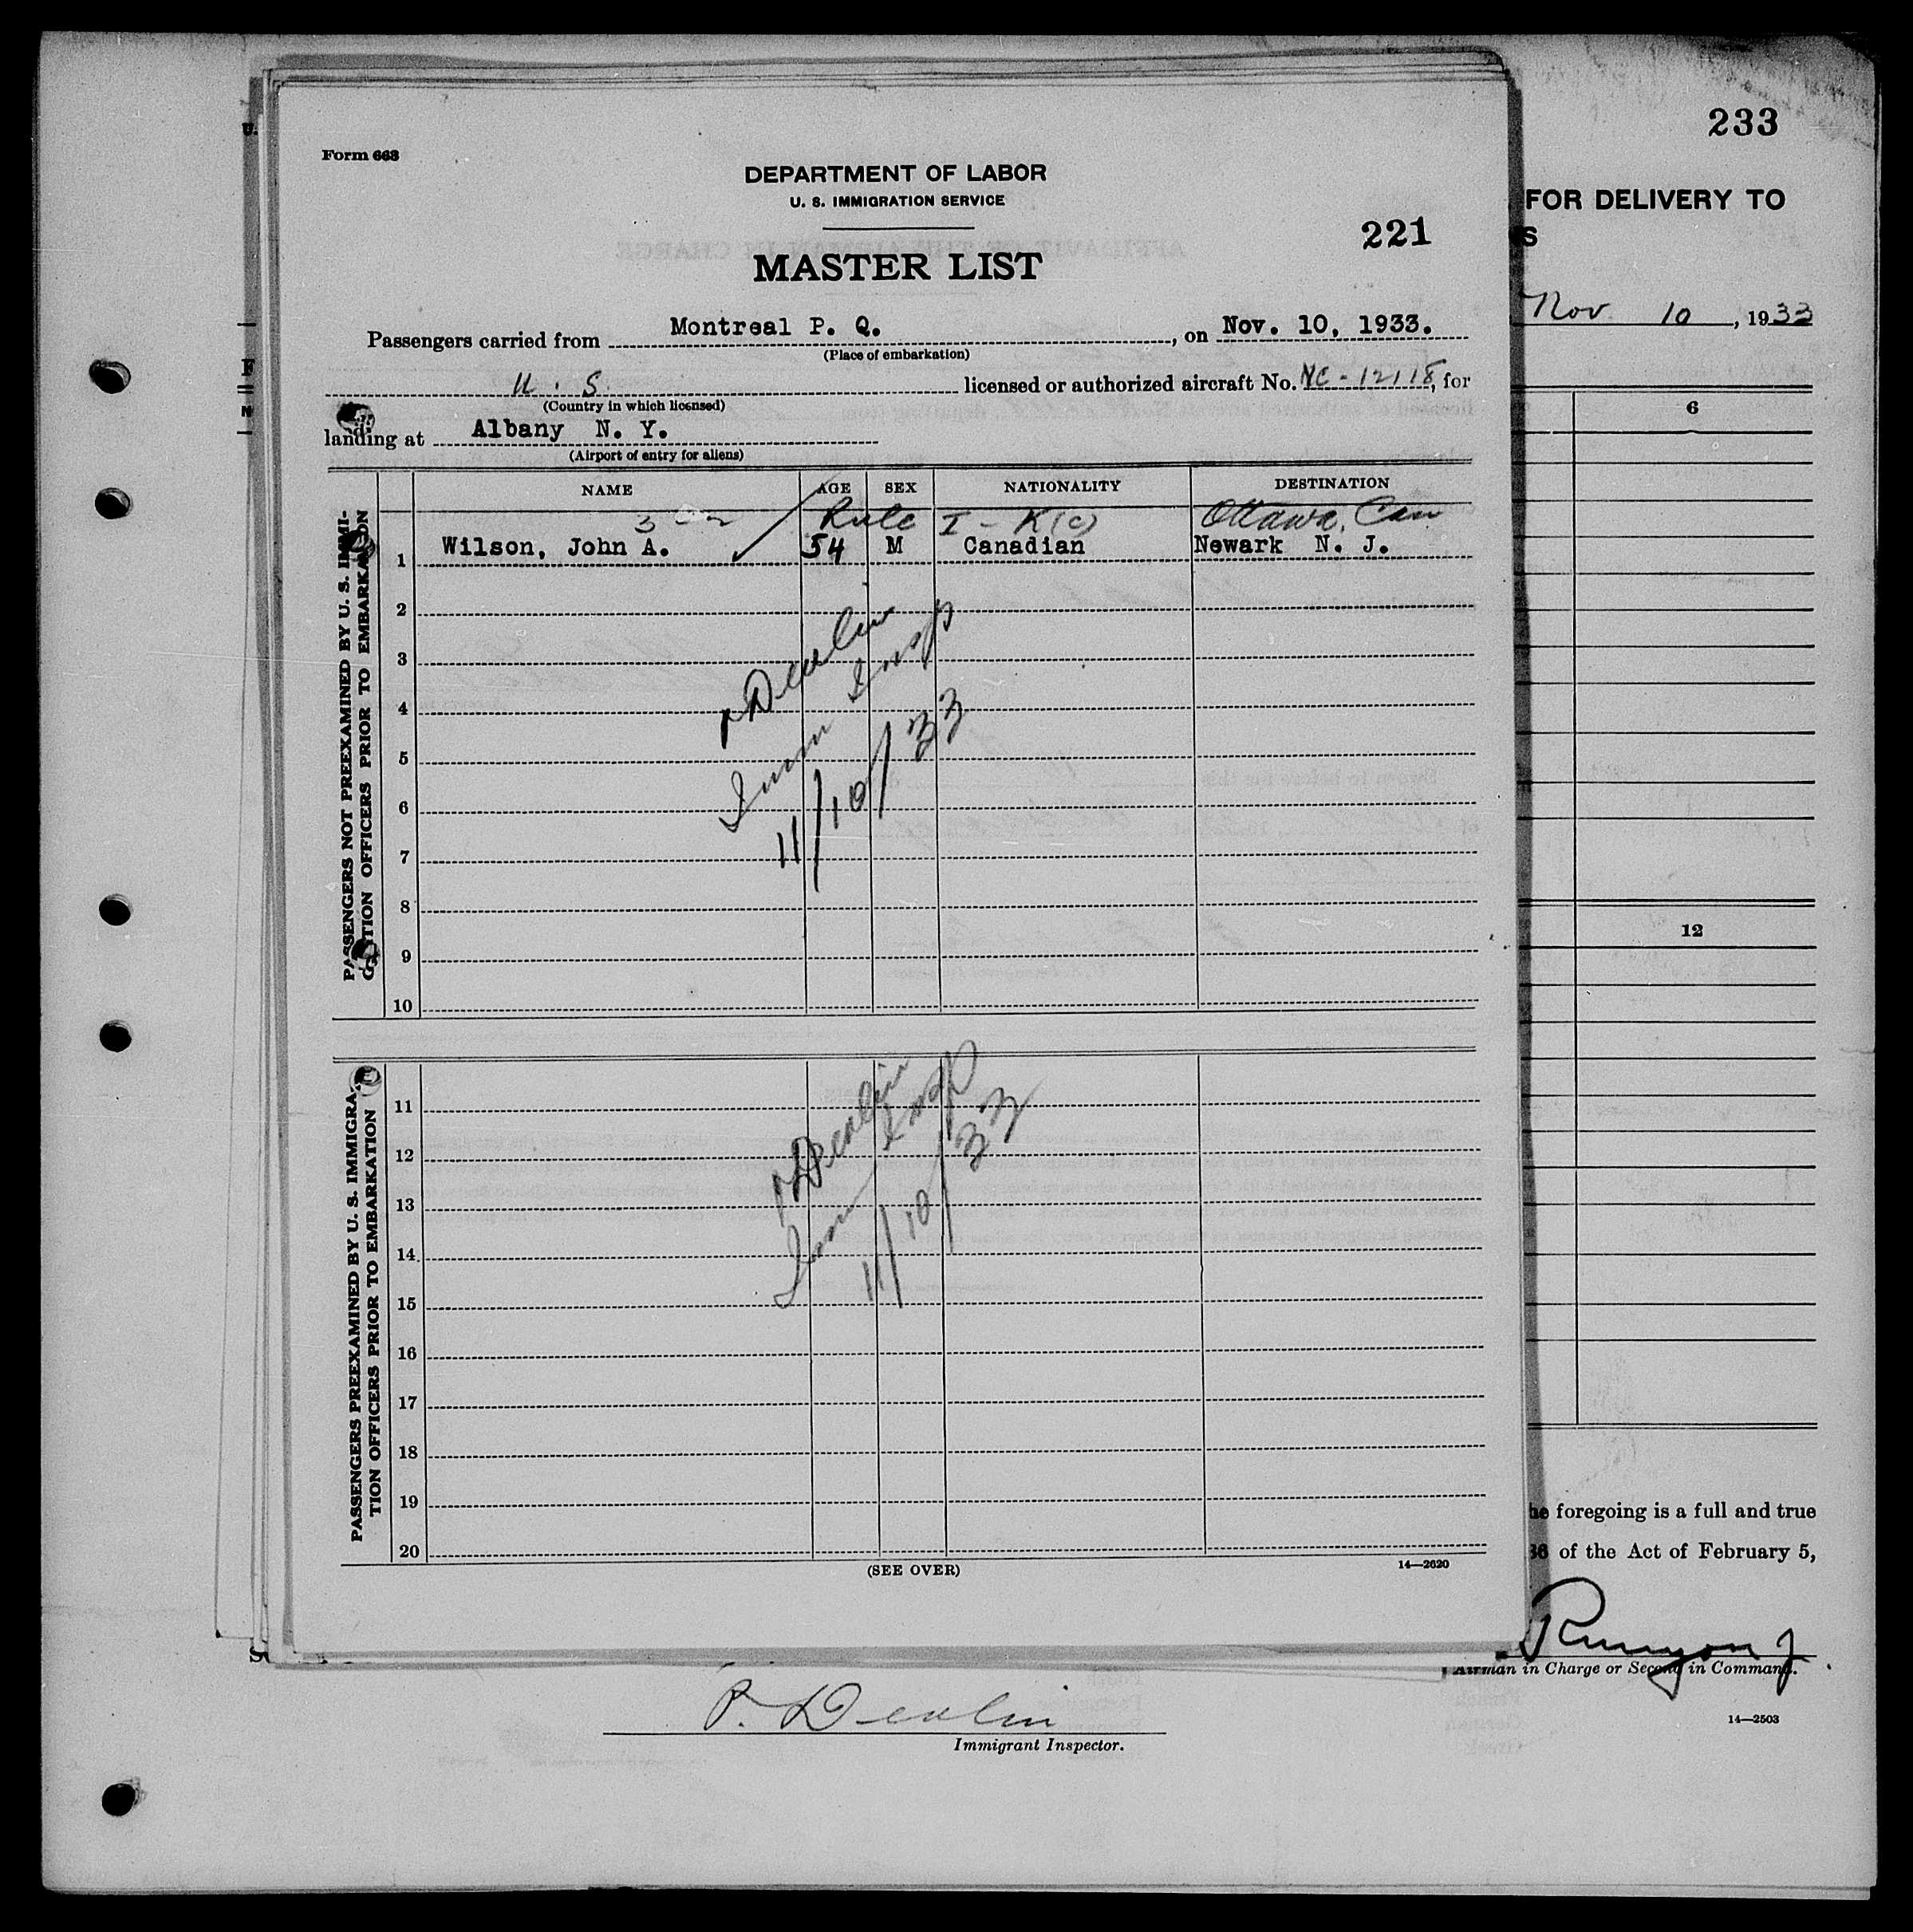 233
FOR DELIVERY TO
S
Nov 10, 1933
6
12
he foregoing is a full and true
36 of the Act of February 5,
Runyon J
Airman in Charge or Second in Command.
14—2503
Form 663
DEPARTMENT OF LABOR
U. S. IMMIGRATION SERVICE
221
MASTER LIST
Passengers carried from Montreal P. Q., on Nov. 10, 1933.
(Place of embarkation)
U. S. licensed or authorized aircraft No. NC-12118, for
(Country in which licensed)
landing at Albany N. Y.
(Airport of entry for aliens)
NAME AGE SEX NATIONALITY DESTINATION
Rule I - K(c) Ottawa, Can
1 Wilson, John A. 54 M Canadian Newark N. J.
2
3
4
5
6
7
8
9
10
PASSENGERS NOT PREEXAMINED BY U. S. IMMI-
GRATION OFFICERS PRIOR TO EMBARKATION
P Devlin
Imm Insp
11/10/33
11
12
13
14
15
16
17
18
19
20
PASSENGERS PREEXAMINED BY U. S. IMMIGRA-
TION OFFICERS PRIOR TO EMBARKATION
P Devlin
Imm Insp
11/10/33
(SEE OVER)
14—2620
P. Devlin
Immigrant Inspector.